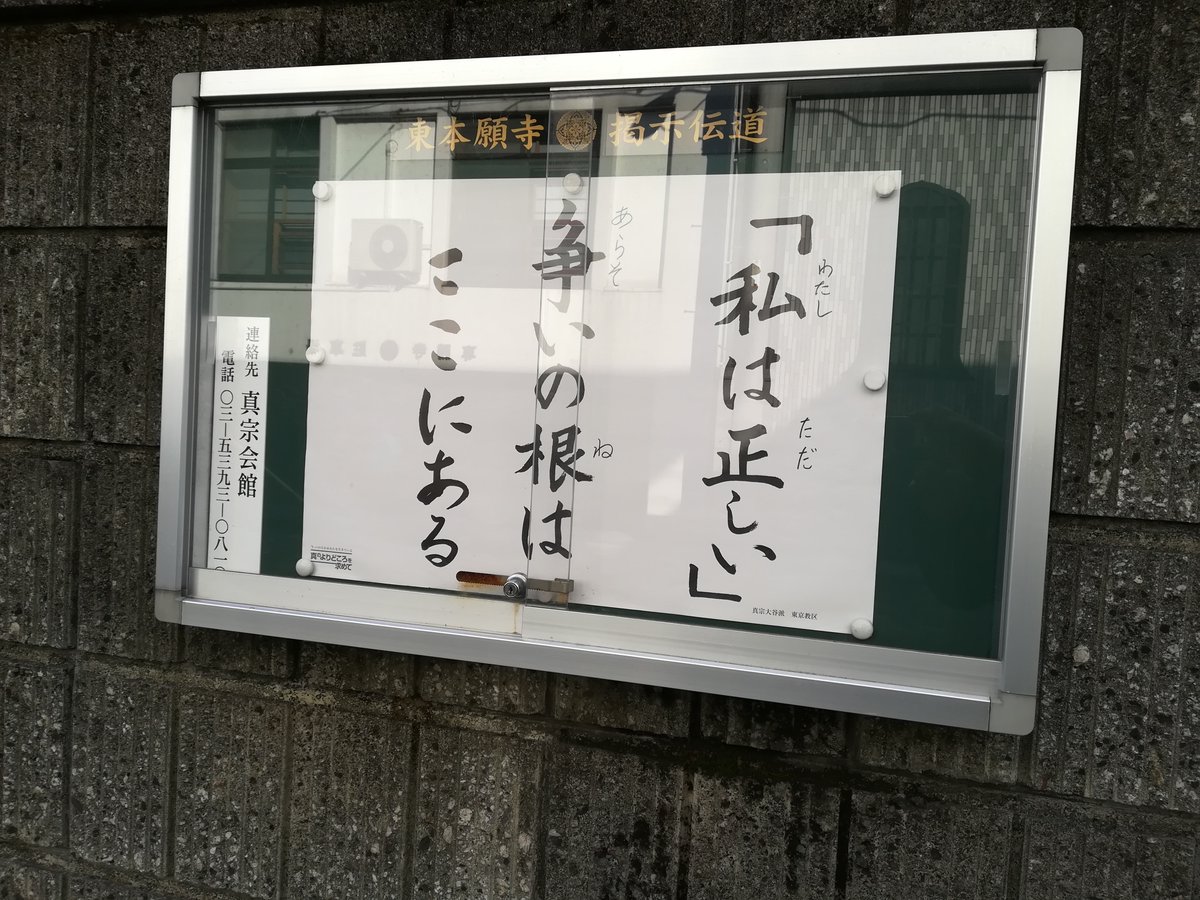 東本願寺 掲示伝道
「私は正しい」
わたし ただ
争いの根は
あらそ ね
ここにある
真宗大谷派 東京教区
真のよりどころを
求めて
連絡先 真宗会館
電話 〇三ー五三九三ー〇八一〇